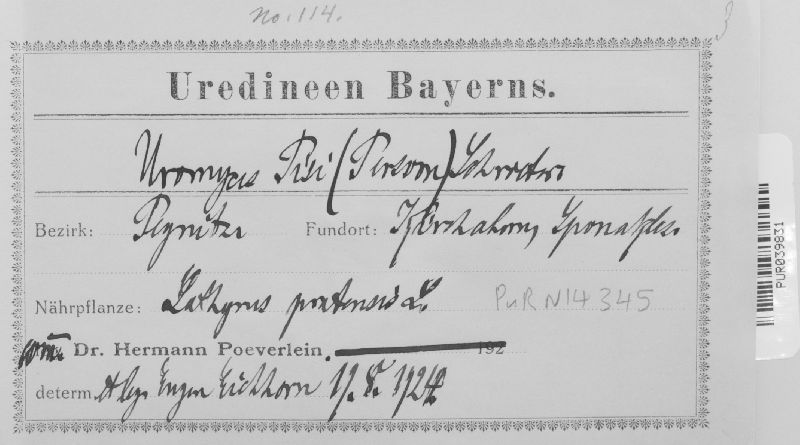 No. 114.
Uredineen Bayerns.
Uromyces Pisi (Persoon) Schroeter
Bezirk: Pegnitz Fundort:
Nährpflanze: Lathyrus pratensis L. PUR N14345
comm. Dr. Hermann Poeverlein. 192
determ. Eugen Eichhorn 17. 8. 1924
PUR039831